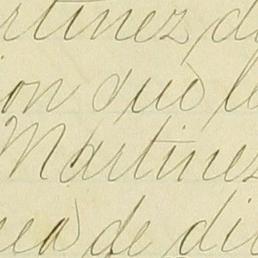 rtinez d
ion que le
Martinez
nea de di